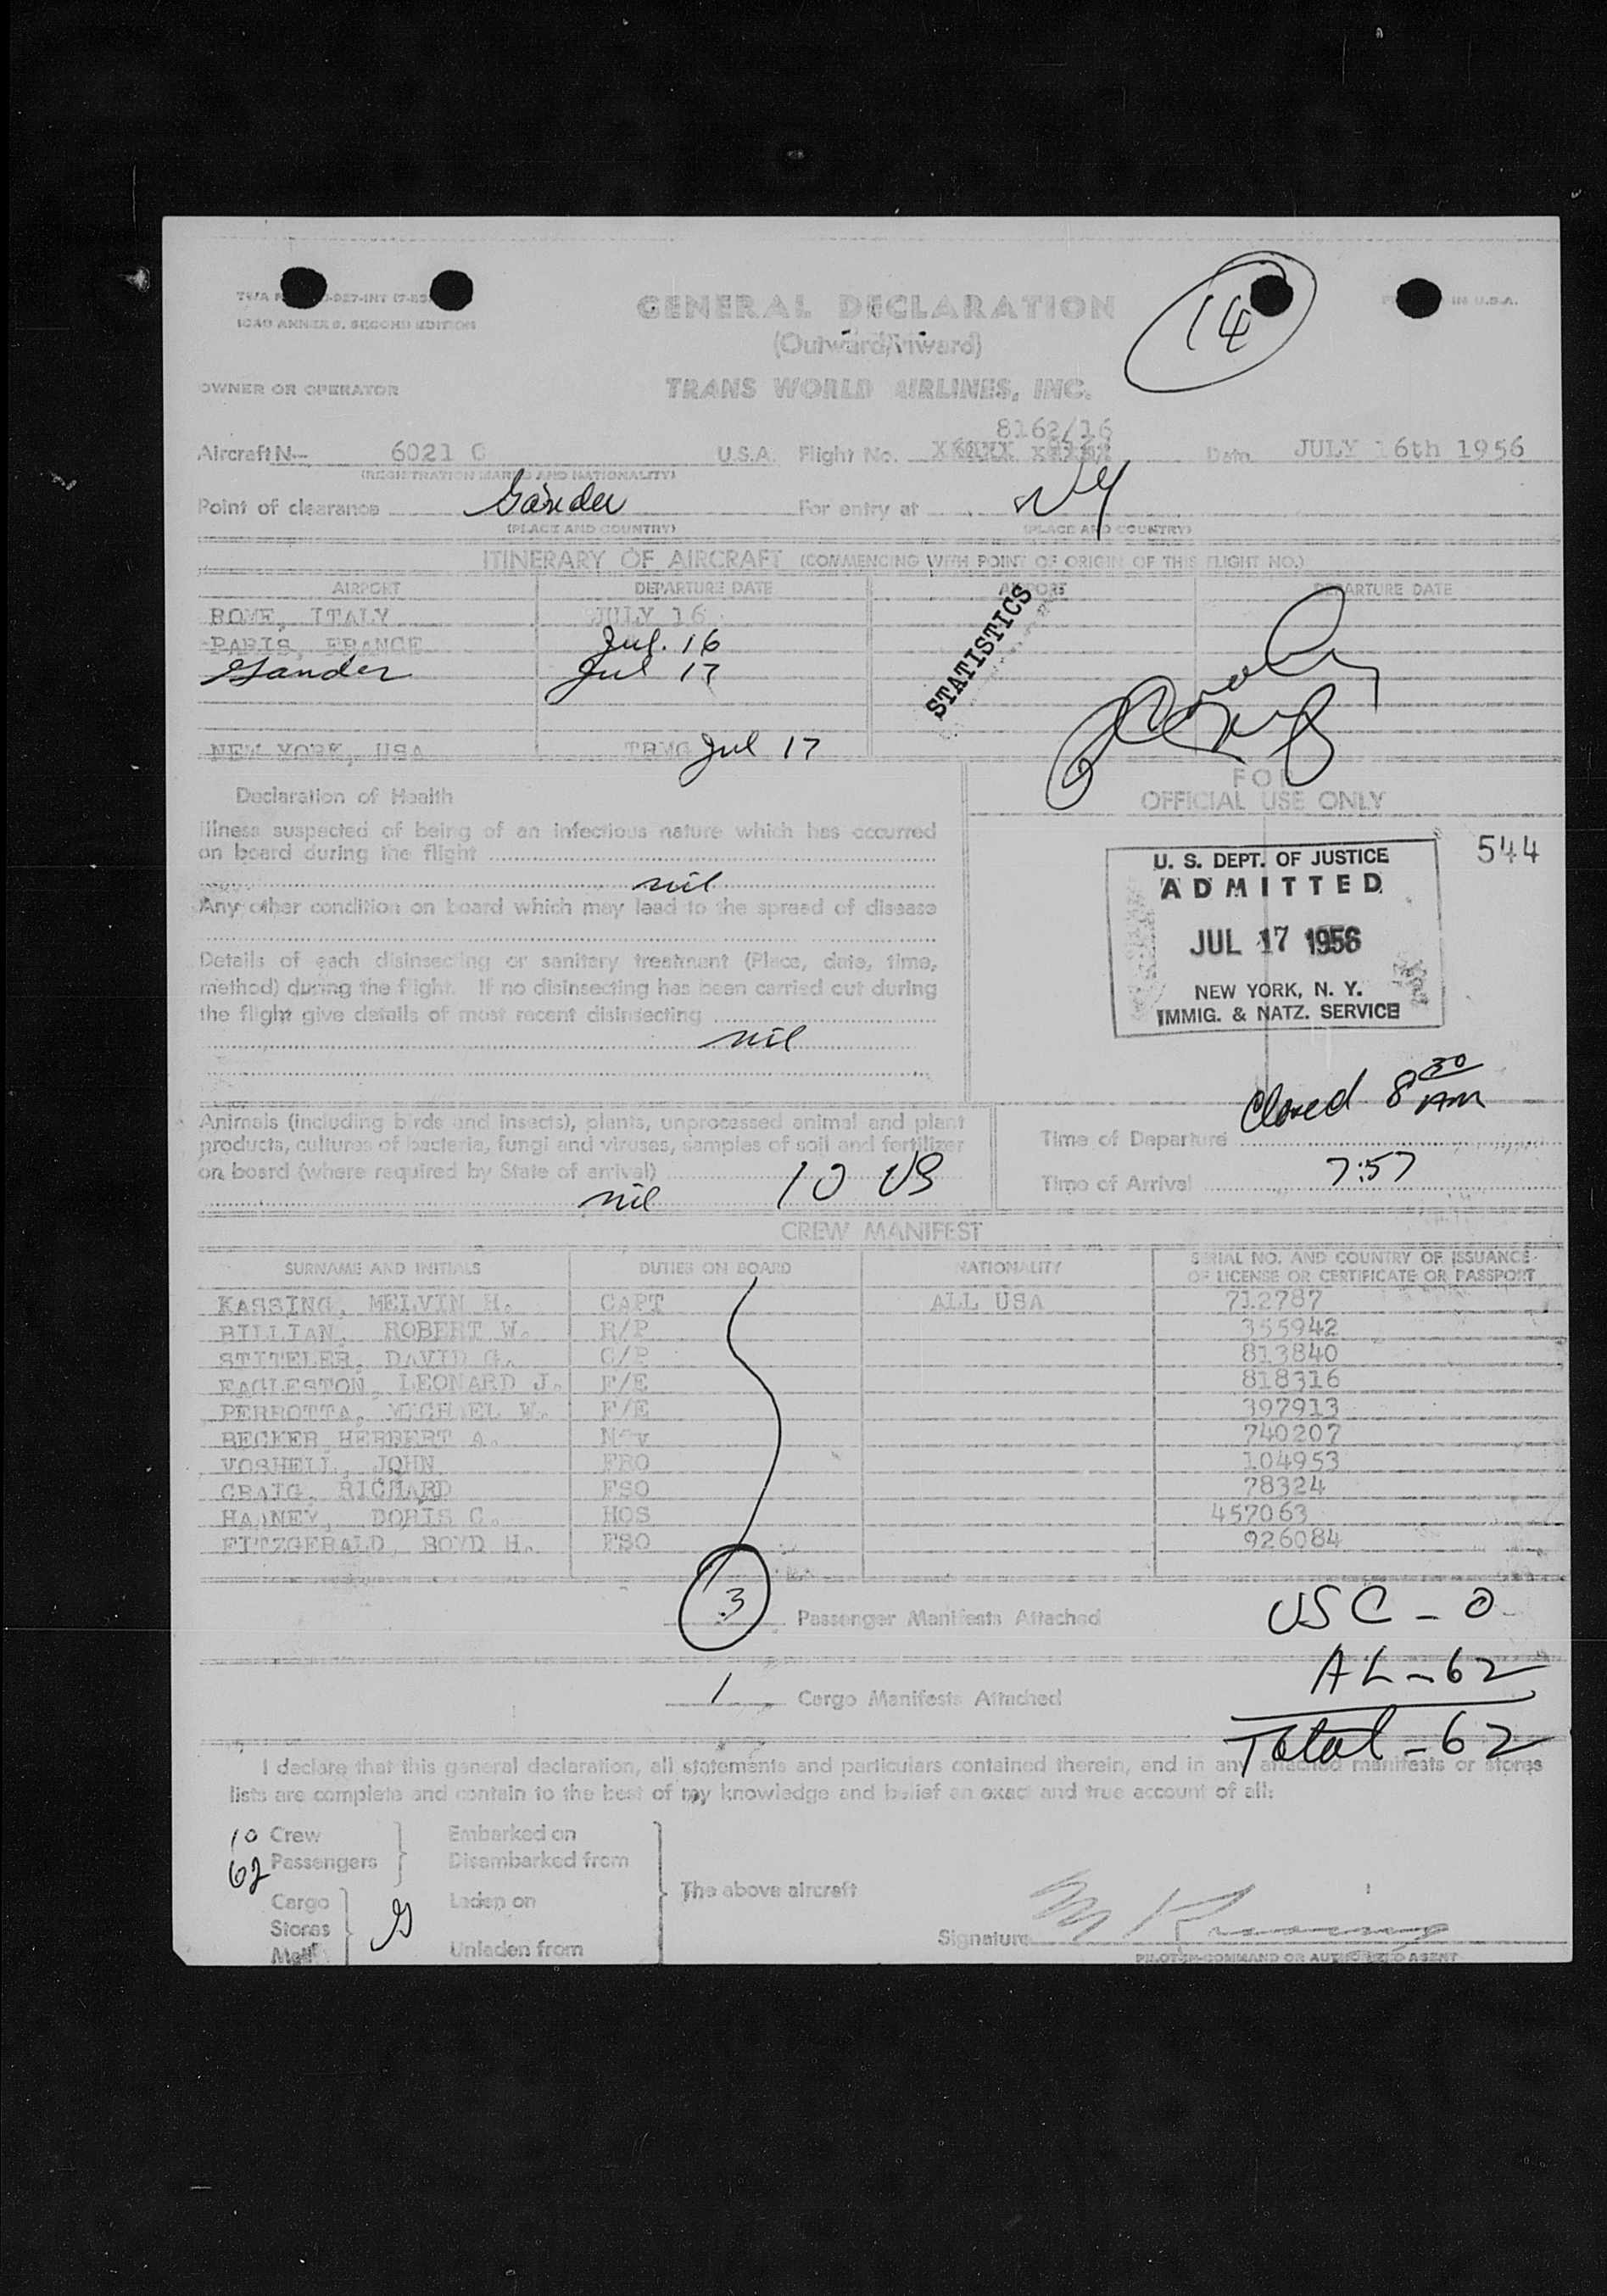 GENERAL DECLARATION
14
IN U.S.A.
ICAO ANNEX 9, SECOND EDITION
(Outward/Inward)
OWNER OR OPERATOR
TRANS WORLD AIRLINES, INC.
8162/16
Aircraft N- 6021 C U.S.A. Flight No. Date JULY 16th 1956
(REGISTRATION MARKS AND NATIONALITY)
Point of clearance Gander For entry at NY
(PLACE AND COUNTRY) (PLACE AND COUNTRY)
ITINERARY OF AIRCRAFT (COMMENCING WITH POINT OF ORIGIN OF THIS FLIGHT NO.)
AIRPORT DEPARTURE DATE AIRPORT DEPARTURE DATE
ROME, ITALY JULY 16
PARIS, FRANCE Jul. 16
Gander Jul 17
STATISTICS
NEW YORK, USA Jul 17
FOR
OFFICIAL USE ONLY
Declaration of Health
Illness suspected of being of an infectious nature which has occurred
on board during the flight
nil
Any other condition on board which may lead to the spread of disease
Details of each disinsecting or sanitary treatment (Place, date, time,
method) during the flight. If no disinsecting has been carried out during
the flight give details of most recent disinsecting
nil
544
U. S. DEPT. OF JUSTICE
ADMITTED
JUL 17 1956
NEW YORK, N. Y.
IMMIG. & NATZ. SERVICE
Closed 8 30 AM
Animals (including birds and insects), plants, unprocessed animal and plant
products, cultures of bacteria, fungi and viruses, samples of soil and fertilizer
on board (where required by State of arrival)
nil 10 US
Time of Departure
Time of Arrival 7:57
CREW MANIFEST
SURNAME AND INITIALS DUTIES ON BOARD NATIONALITY SERIAL NO. AND COUNTRY OF ISSUANCE OF LICENSE OR CERTIFICATE OR PASSPORT
KASSING, MELVIN H. CAPT ALL USA 712787
BILLIAN, ROBERT W. R/P 355942
STITELER, DAVID G. C/P 813840
EAGLESTON, LEONARD J. F/E 818316
PERROTTA, MICHAEL W. F/E 397913
BECKER HERBERT A. Nav 740207
VOSHELL, JOHN FRO 104953
CRAIG, RICHARD FSO 78324
DORIS C. HOS 457063
FITZGERALD, BOYD H. FSO 926084
3 Passenger Manifests Attached
USC - 0
AL - 62
1 Cargo Manifests Attached
Total - 62
I declare that this general declaration, all statements and particulars contained therein, and in any attached manifests or stores
lists are complete and contain to the best of my knowledge and belief an exact and true account of all:
10 Crew Embarked on
62 Passengers Disembarked from
The above aircraft
Cargo Laden on
Stores
Mail Unladen from
Signature
PILOT-IN-COMMAND OR AUTHORIZED AGENT